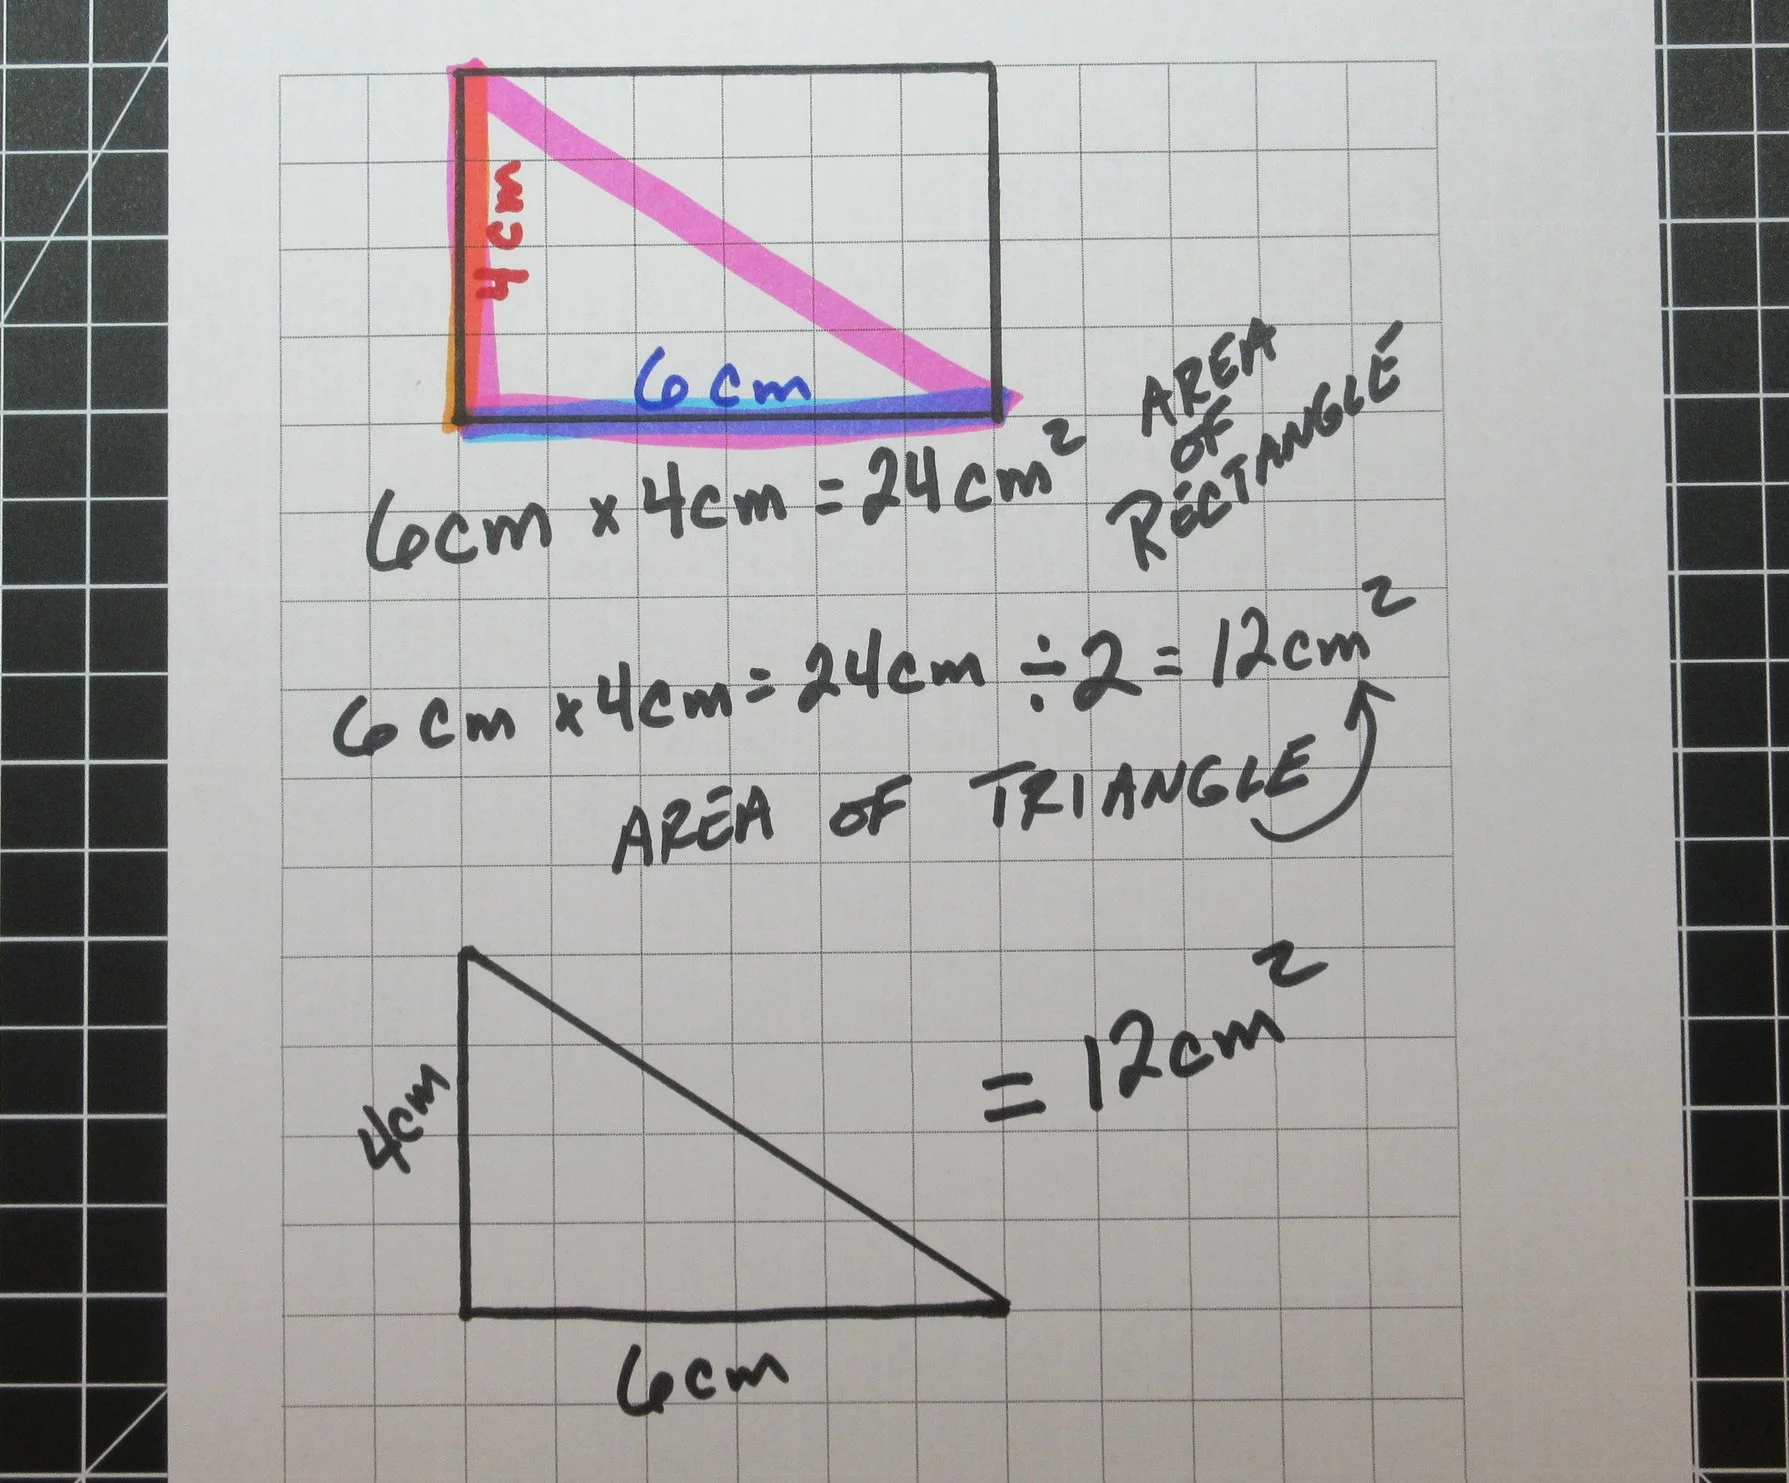 4cm
6cm
6cm x 4cm = 24cm² AREA OF RECTANGLE
6cm x 4cm = 24cm ÷ 2 = 12cm²
AREA OF TRIANGLE
4cm
= 12cm²
6cm